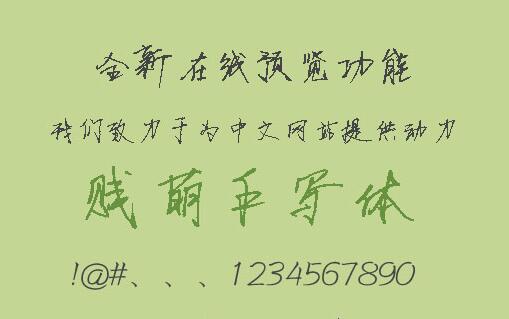 全新在线预览功能
我们致力于为中文网站提供动力
贱萌手写体
!@#、、、1234567890